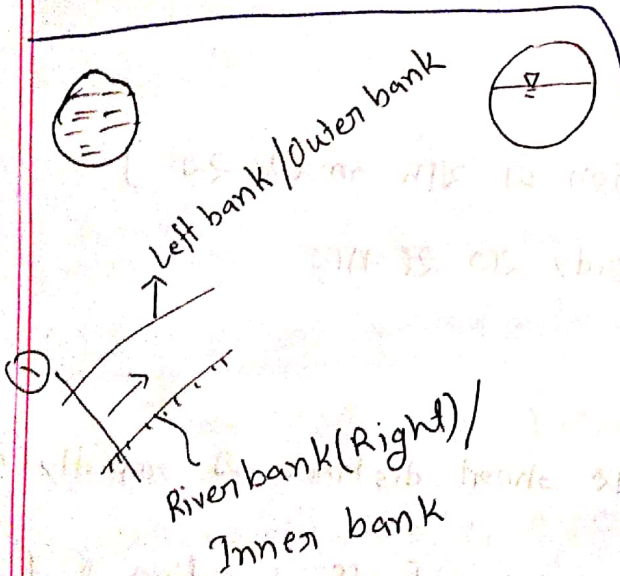 Left bank/Outer bank
River bank (Right)/
Inner bank